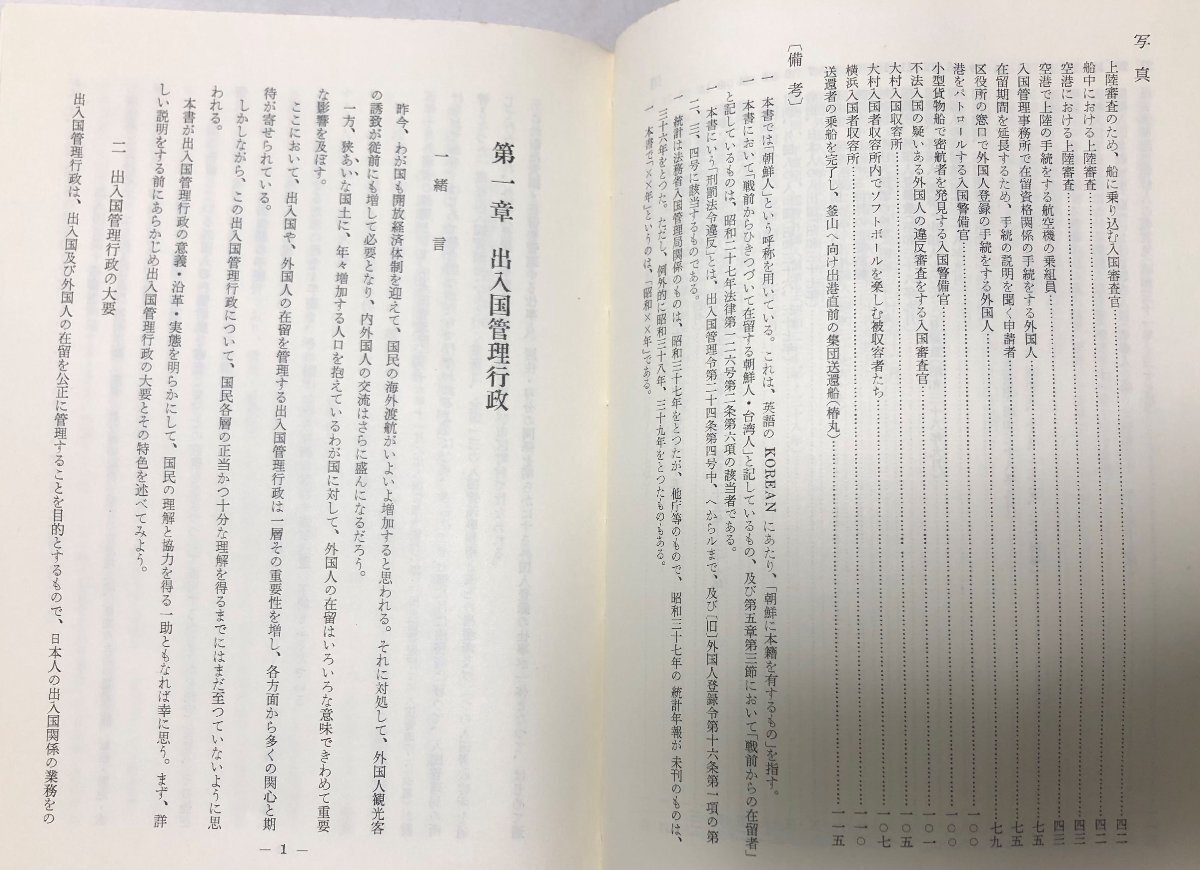 写真
上陸審査のため、船に乗り込む入国審査官……四二
船中における上陸審査……四二
空港における上陸審査……四三
空港で上陸の手続をする航空機の乗組員……四三
入国管理事務所で在留資格関係の手続をする外国人……七五
在留期間を延長するため、手続の説明を聞く申請者……七五
区役所の窓口で外国人登録の手続をする外国人……七九
港をパトロールする入国警備官……一〇〇
小型貨物船で密航者を発見する入国警備官……一〇〇
不法入国の疑いある外国人の違反審査をする入国審査官……一〇一
大村入国者収容所……一〇五
大村入国者収容所内でソフトボールを楽しむ被収容者たち……一〇七
横浜入国者収容所……一一〇
送還者の乗船を完了し、釜山へ向け出港直前の集団送還船(椿丸)……一一五
〔備考〕
一 本書では「朝鮮人」という呼称を用いている。これは、英語の KOREAN にあたり、「朝鮮に本籍を有するもの」を指す。
一 本書において「戦前からひきつづいて在留する朝鮮人・台湾人」と記しているもの、及び第五章第三節において「戦前からの在留者」
と記しているものは、昭和二十七年法律第一二六号第二条第六項の該当者である。
一 本書にいう「刑罰法令違反」とは、出入国管理令第二十四条第四号中、ヘからルまで、及び「旧」外国人登録令第十六条第一項の第
二、三、四号に該当するものである。
一 統計は法務省入国管理局関係のものは、昭和三十七年をとつたが、他庁等のもので、昭和三十七年の統計年報が未刊のものは、
三十六年をとつた。ただし、例外的に昭和三十八年、三十九年をとつたものもある。
一 本書で「××年」というのは、「昭和××年」である。
第一章 出入国管理行政
一 緒言
昨今、わが国も開放経済体制を迎えて、国民の海外渡航がいよいよ増加すると思われる。それに対処して、外国人観光客
の誘致が従前にも増して必要となり、内外国人の交流はさらに盛んになるだろう。
一方、狭あいな国土に、年々増加する人口を抱えているわが国に対して、外国人の在留はいろいろな意味できわめて重要
な影響を及ぼす。
ここにおいて、出入国や、外国人の在留を管理する出入国管理行政は一層その重要性を増し、各方面から多くの関心と期
待が寄せられている。
しかしながら、この出入国管理行政について、国民各層の正当かつ十分な理解を得るまでにはまだ至つていないように思
われる。
本書が出入国管理行政の意義・沿革・実態を明らかにして、国民の理解と協力を得る一助ともなれば幸に思う。まず、詳
しい説明をする前にあらかじめ出入国管理行政の大要とその特色を述べてみよう。
二 出入国管理行政の大要
出入国管理行政は、出入国及び外国人の在留を公正に管理することを目的とするもので、日本人の出入国関係の業務をの
— 1 —